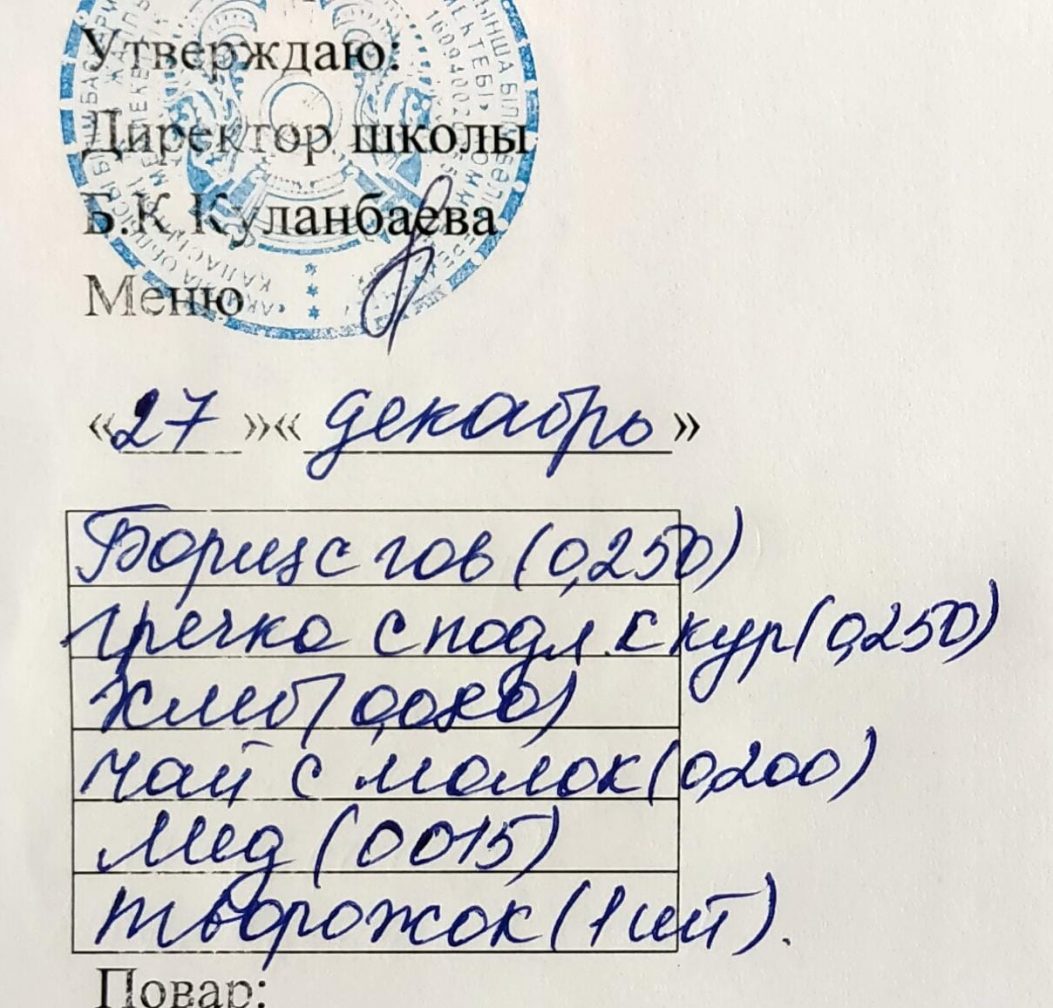 Утверждаю:
Директор школы
Б.К Куланбаева
Меню
«27»«декабрь»
Борщ с гов (0,250)
гречка с подл. с кур (0,250)
Хлеб (0,080)
чай с молок (0,200)
Мед (0015)
творожок (1 шт).
Повар: